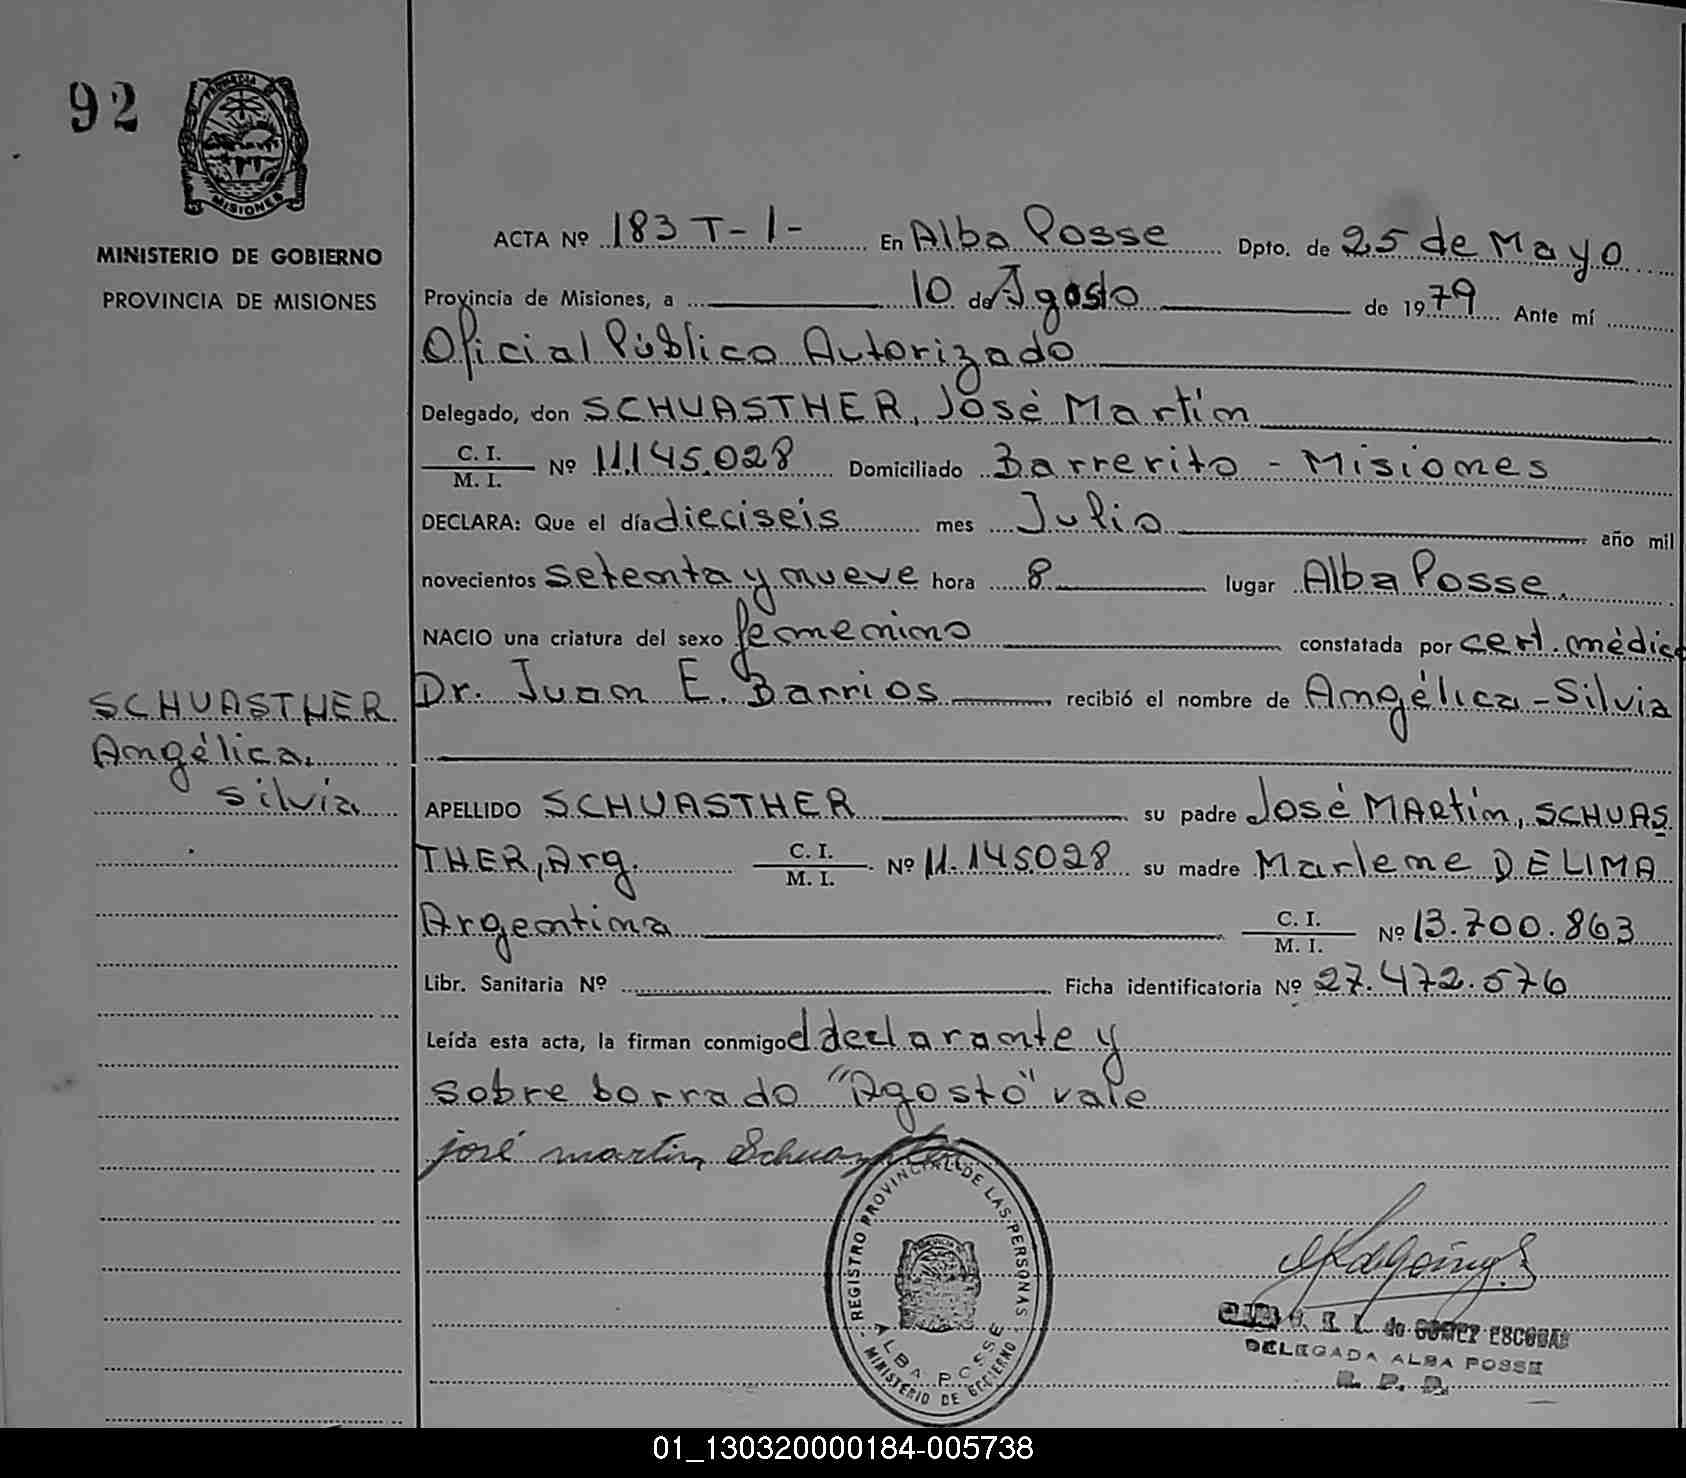 92
PROVINCIA
MISIONES
MINISTERIO DE GOBIERNO
PROVINCIA DE MISIONES
ACTA Nº 183 T-1- En Alba Posse Dpto. de 25 de Mayo
Provincia de Misiones, a 10 de Agosto de 1979 Ante mí
Oficial Público Autorizado
Delegado, don SCHUASTHER, José Martín
C. I. / M. I. Nº 11.145.028 Domiciliado Barrerito - Misiones
DECLARA: Que el día dieciseis mes Julio año mil
novecientos setenta y nueve hora 8 lugar Alba Posse.
NACIO una criatura del sexo femenino constatada por cert. médico
Dr. Juan E. Barrios recibió el nombre de Angélica-Silvia
SCHUASTHER
Angélica
Silvia
APELLIDO SCHUASTHER su padre José MARtín, SCHUAS
THER, Arg. C. I. / M. I. Nº 11.145028 su madre Marlene DELIMA
Argentina C. I. / M. I. Nº 13.700.863
Libr. Sanitaria Nº Ficha identificatoria Nº 27.472.576
Leída esta acta, la firman conmigo el declarante y
sobre borrado "Agosto" vale
josé martin Schuasther
REGISTRO PROVINCIAL DE LAS PERSONAS
ALBA POSSE
MINISTERIO DE GOBIERNO
de GOMEZ ESCOBAR
DELEGADA ALBA POSSE
01_130320000184-005738